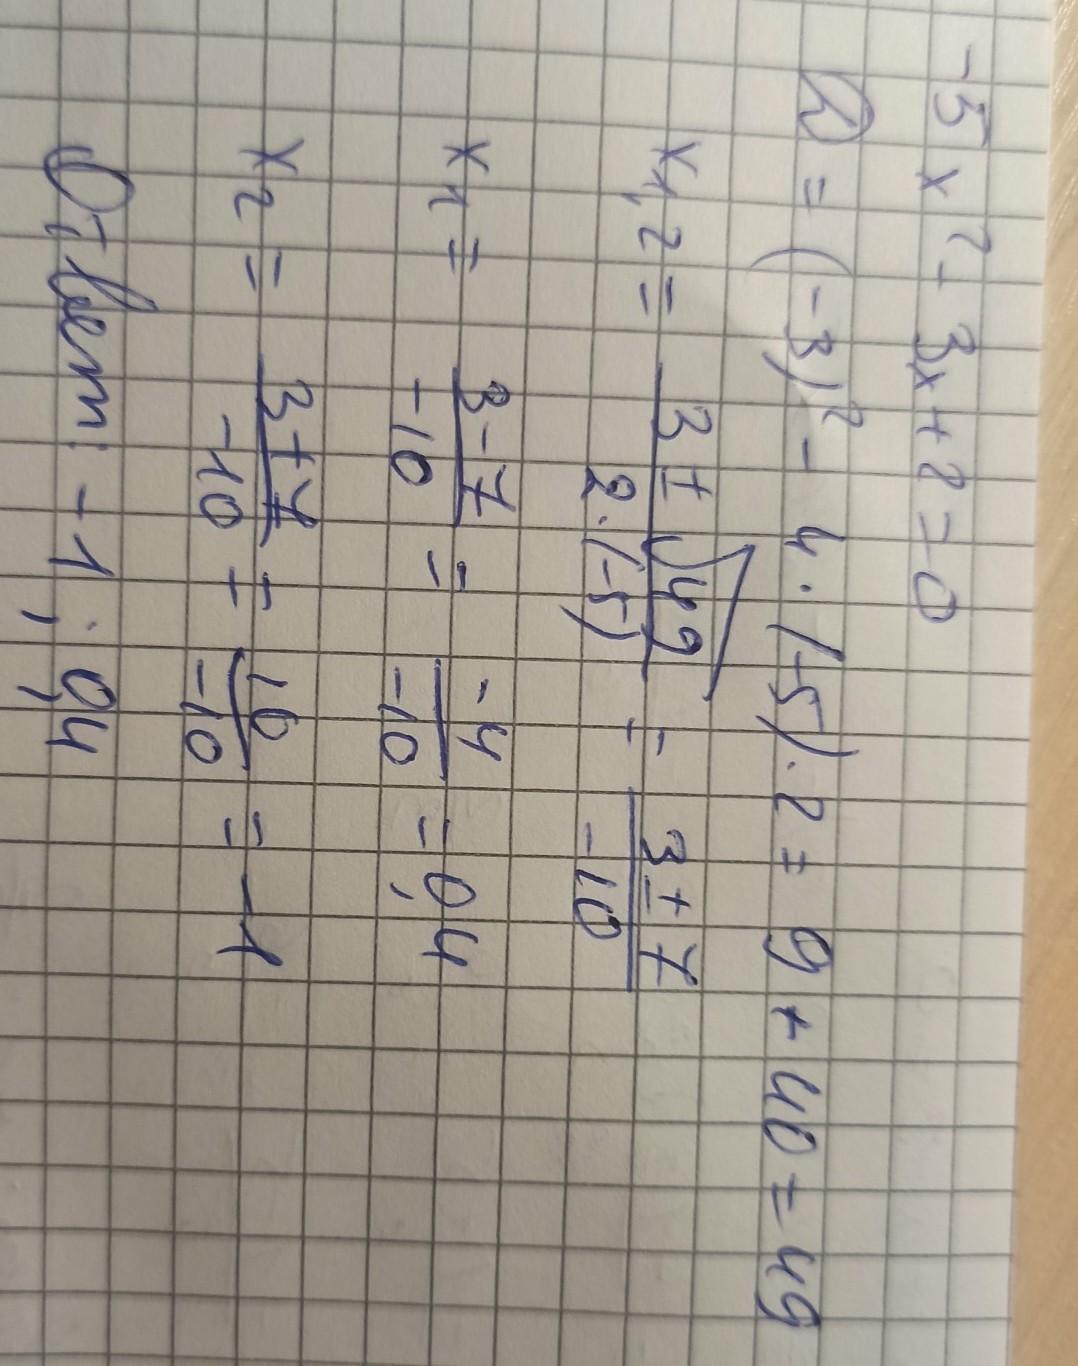 -5x² - 3x + 2 = 0
D = (-3)² - 4 · (-5) · 2 = 9 + 40 = 49
x₁,₂ = (3 ± √49)/(2 · (-5)) = (3 ± 7)/(-10)
x₁ = (3 - 7)/(-10) = (-4)/(-10) = 0,4
x₂ = (3 + 7)/(-10) = 10/(-10) = -1
Ответ: -1; 0,4